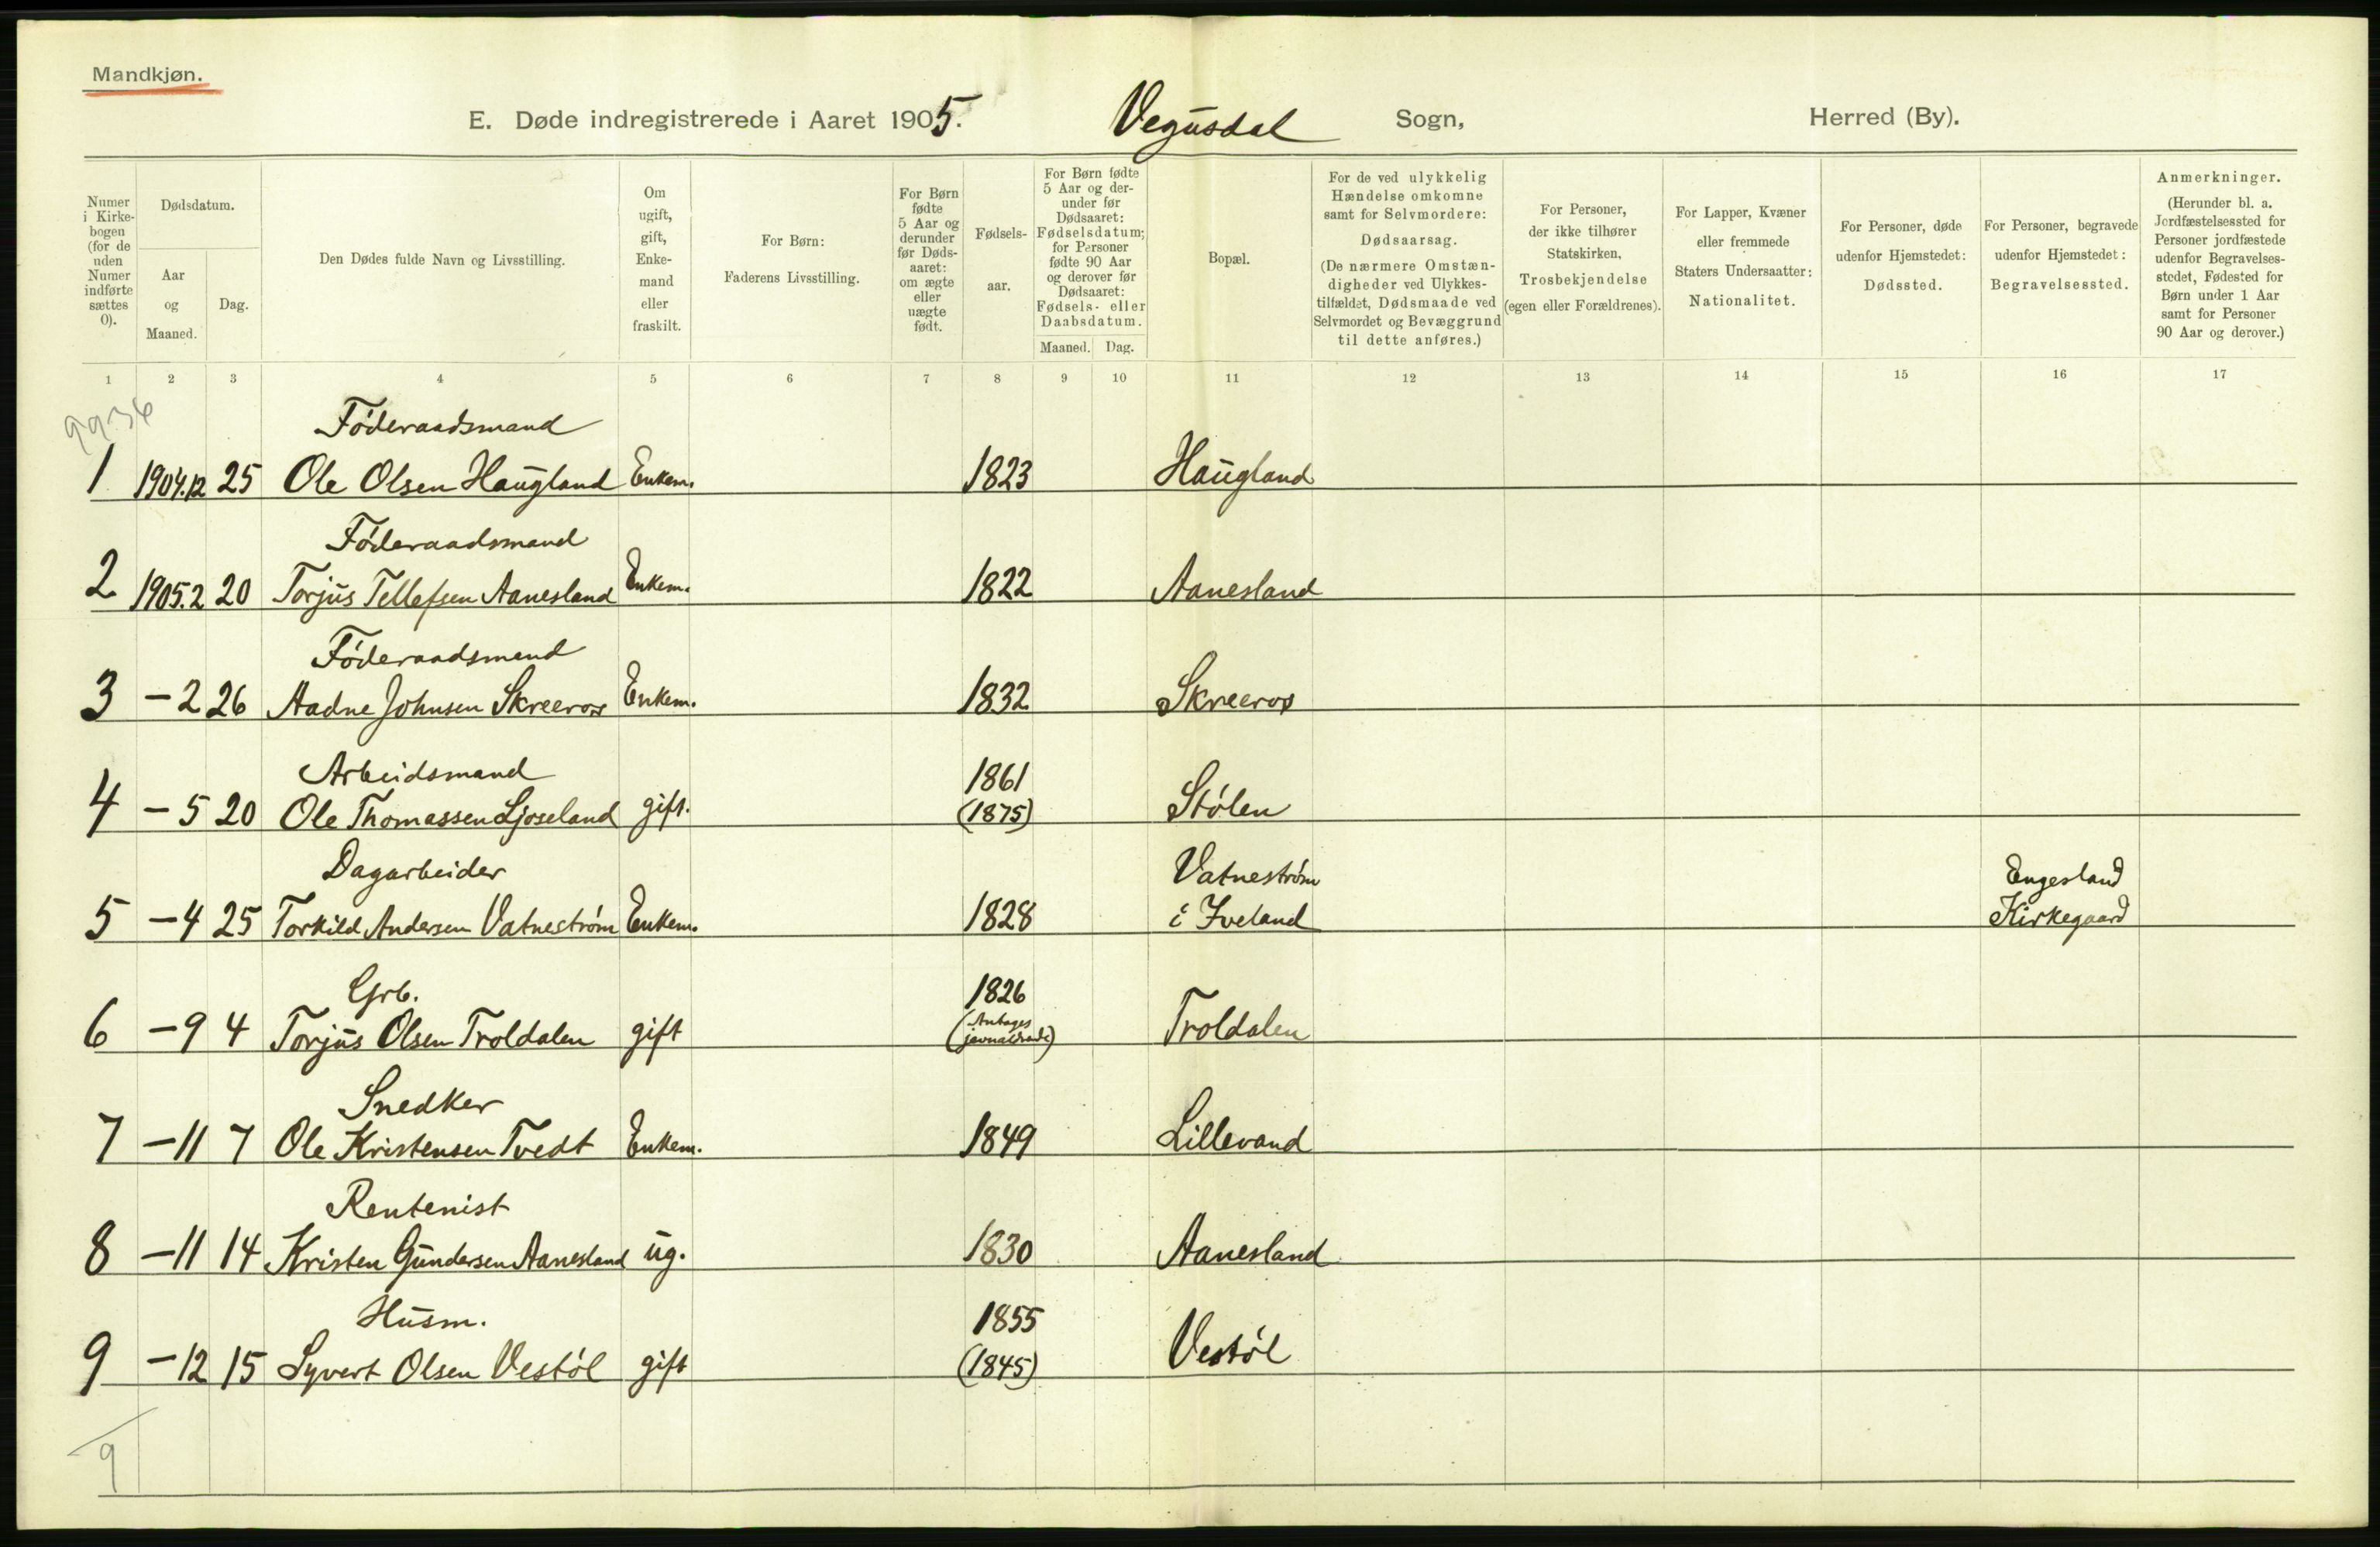 Mandkjøn.
E. Døde indregistrerede i Aaret 1905. Vegusdal Sogn, Herred (By).
Numer i Kirke-bogen (for de uden Numer indførte sættes 0).
Dødsdatum.
Aar og Maaned.
Dag.
Den Dødes fulde Navn og Livsstilling.
Om ugift, gift, Enke-mand eller fraskilt.
For Børn: Faderens Livsstilling.
For Børn fødte 5 Aar og derunder før Døds-aaret: om ægte eller uægte født.
Fødsels-aar.
For Børn fødte 5 Aar og der-under før Dødsaaret: Fødselsdatum; for Personer fødte 90 Aar og derover før Dødsaaret: Fødsels- eller Daabsdatum.
Maaned. Dag.
Bopæl.
For de ved ulykkelig Hændelse omkomne samt for Selvmordere: Dødsaarsag. (De nærmere Omstæn-digheder ved Ulykkes-tilfældet, Dødsmaade ved Selvmordet og Bevæggrund til dette anføres.)
For Personer, der ikke tilhører Statskirken, Trosbekjendelse (egen eller Forældrenes).
For Lapper, Kvæner eller fremmede Staters Undersaatter: Nationalitet.
For Personer, døde udenfor Hjemstedet: Dødssted.
For Personer, begravede udenfor Hjemstedet: Begravelsessted.
Anmerkninger. (Herunder bl. a. Jordfæstelsessted for Personer jordfæstede udenfor Begravelses-stedet, Fødested for Børn under 1 Aar samt for Personer 90 Aar og derover.)
1 2 3 4 5 6 7 8 9 10 11 12 13 14 15 16 17
Føderaadsmand
1 1904.12 25 Ole Olsen Haugland Enkem. 1823 Haugland
Føderaadsmand
2 1905.2 20 Torjus Tellefsen Aanesland Enkem. 1822 Aanesland
Føderaadsmand
3 - 2 26 Aadne Johnsen Skreeros Enkem. 1832 Skreeros
Arbeidsmand 1861
4 - 5 20 Ole Thomassen Ljoseland gift. (1875) Stølen
Dagarbeider Vatnestrøm Engesland
5 - 4 25 Torkild Andersen Vatnestrøm Enkem. 1828 i Iveland Kirkegaard
Grb. 1826
6 - 9 4 Torjus Olsen Troldalen gift (Antages jevnaldrende) Troldalen
Snedker
7 - 11 7 Ole Kristensen Tvedt Enkem. 1849 Lillevand
Rentenist
8 - 11 14 Kristen Gundersen Aanesland ug. 1830 Aanesland
Husm. 1855
9 - 12 15 Syvert Olsen Vestøl gift (1845) Vestøl
9